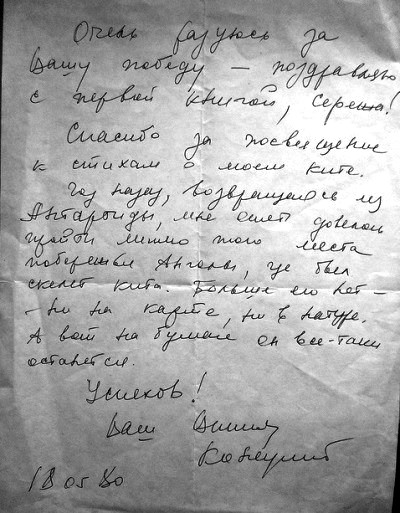 Очень радуюсь за
Вашу победу — поздравляю
с первой книгой, Сережа!
Спасибо за посвещение
к стихам о моем ките.
Год назад, возвращаясь из
Антарктиды, мне опять довелось
пройти мимо того места
побережья Анголы, где был
скелет кита. Больше его нет –
– ни на карте, ни в натуре.
А вот на бумаге он все-таки
останется.
Успехов!
Ваш
18 05 80